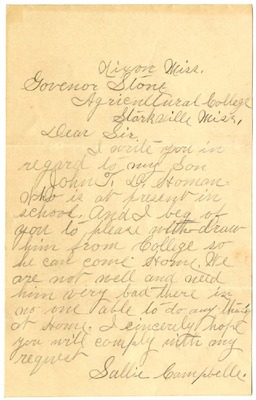 Nixon Miss.
Govenor Stone
Agricultural College
Starkville Miss,
Dear Sir.
I write you in
regard to my Son
John T. D. Homan
who is at present in
school. And I beg of
you to please withdraw
him from College so
he can come Home. We
are not well and need
him very bad there in
no one able to do any thing
at Home. I sincerely hope
you will comply with my
request
Sallie Campbelle.